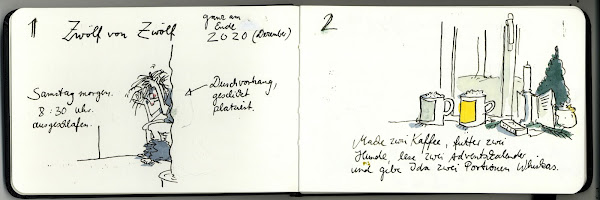 1
Zwölf von Zwölf
ganz am
Ende
2020 (Dezember)
Samstag morgen.
8:30 uhr.
ausgeschlafen.
Duschvorhang,
geschickt
platziert.
2
Mache zwei Kaffee, fütter zwei
Hunde, lese zwei Adventskalender
und gebe Ida zwei Portionen Whiskas.